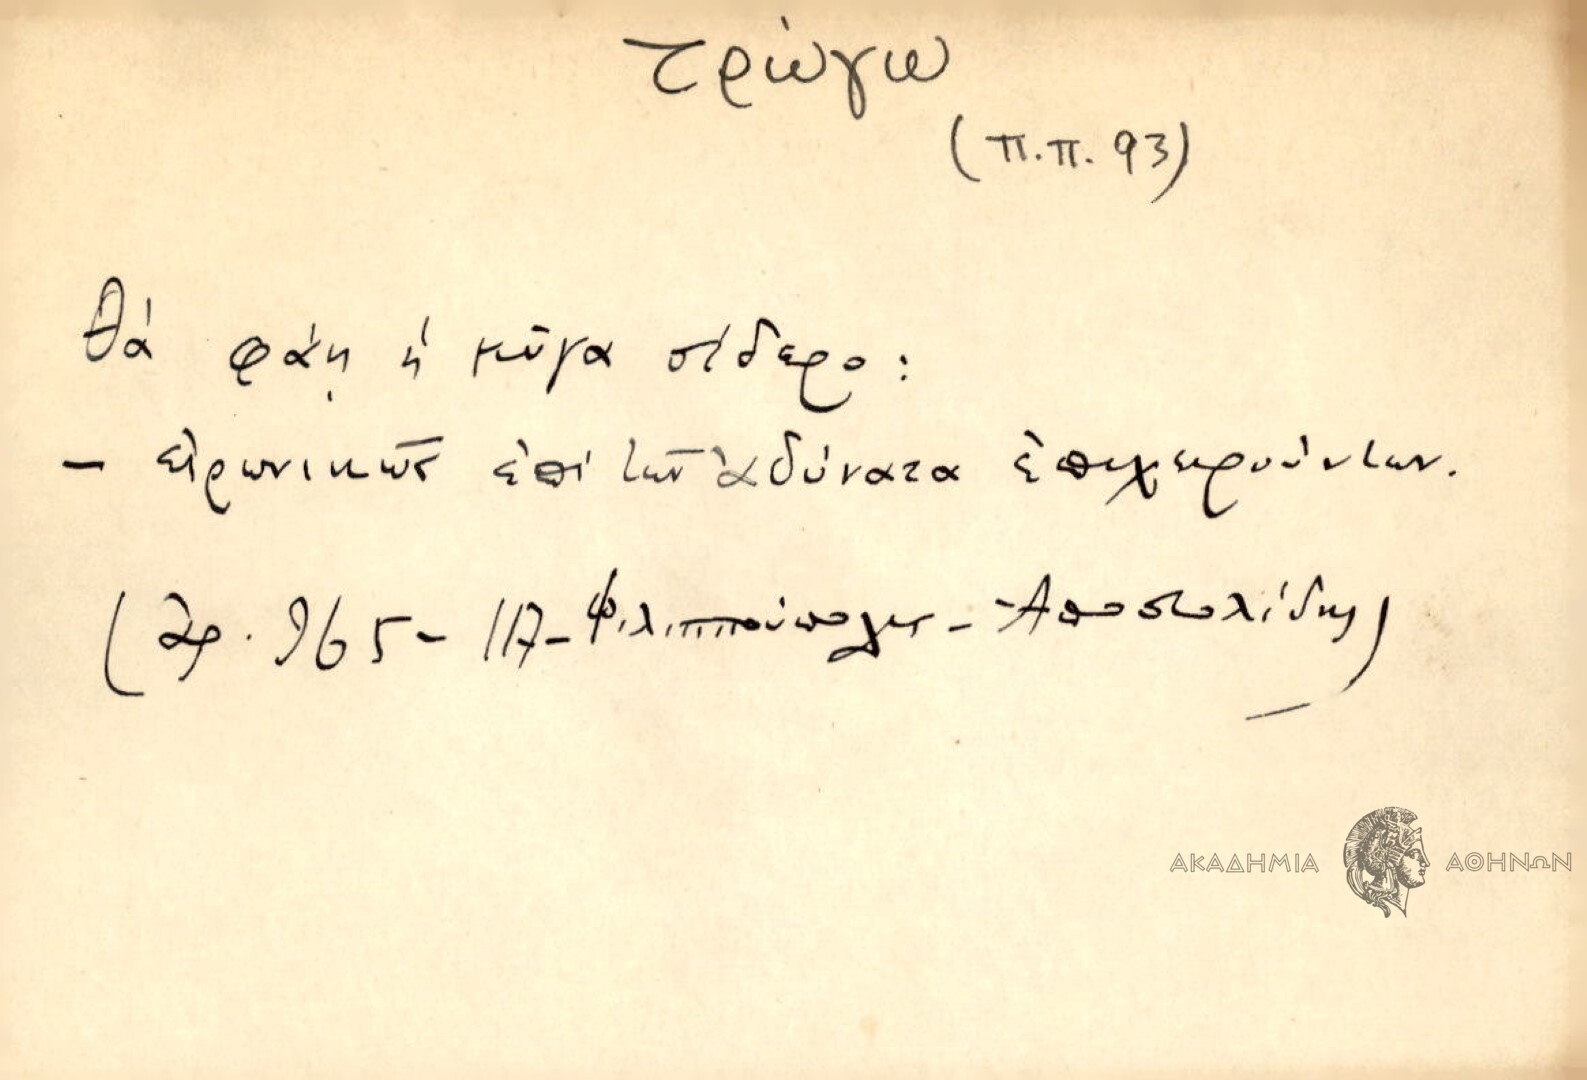 τρώγω
(π.π. 93)
θά φάῃ ἡ μῦγα σίδερο:
– εἰρωνικῶς ἐπί τῶν ἀδύνατα ἐπιχειρούντων.
(ἀρ. 965 – 117 – Φιλιππούπολις – Ἀποστολίδης)
ΑΚΑΔΗΜΙΑ ΑΘΗΝΩΝ